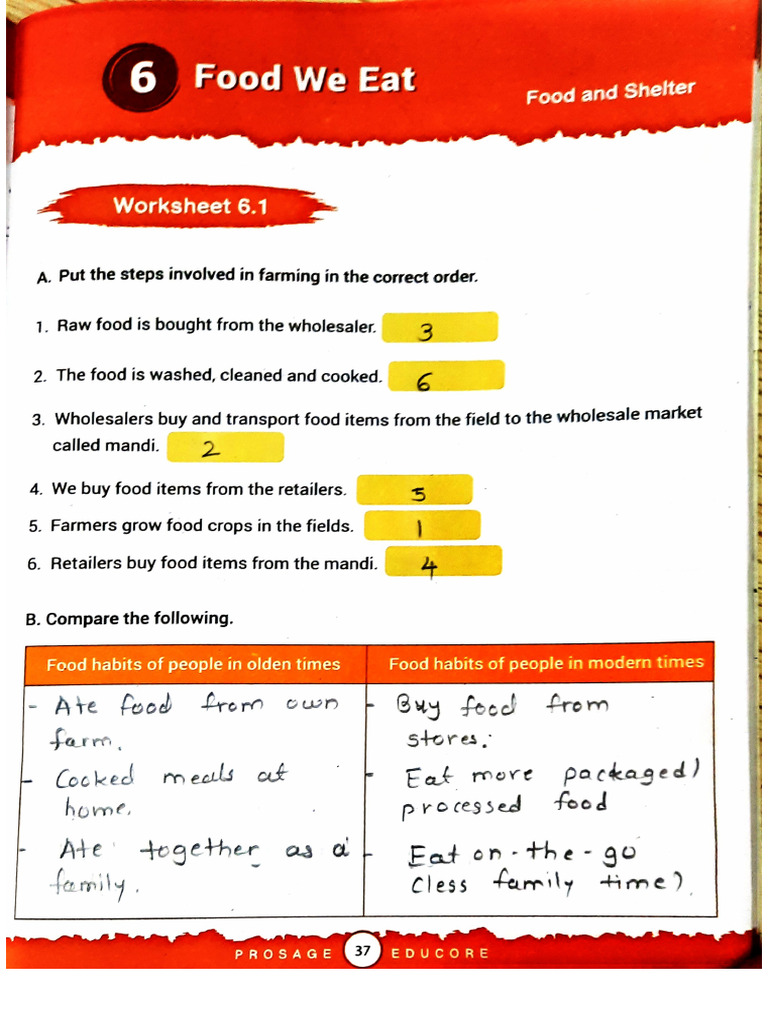 6 Food We Eat
Food and Shelter
Worksheet 6.1
A. Put the steps involved in farming in the correct order.
1. Raw food is bought from the wholesaler. 3
2. The food is washed, cleaned and cooked. 6
3. Wholesalers buy and transport food items from the field to the wholesale market
called mandi. 2
4. We buy food items from the retailers. 5
5. Farmers grow food crops in the fields. 1
6. Retailers buy food items from the mandi. 4
B. Compare the following.
Food habits of people in olden times
- Ate food from own
farm.
- Cooked meals at
home.
- Ate together as a
family.
Food habits of people in modern times
- Buy food from
stores.
- Eat more packaged)
processed food
- Eat on-the-go
(less family time).
PROSAGE 37 EDUCORE